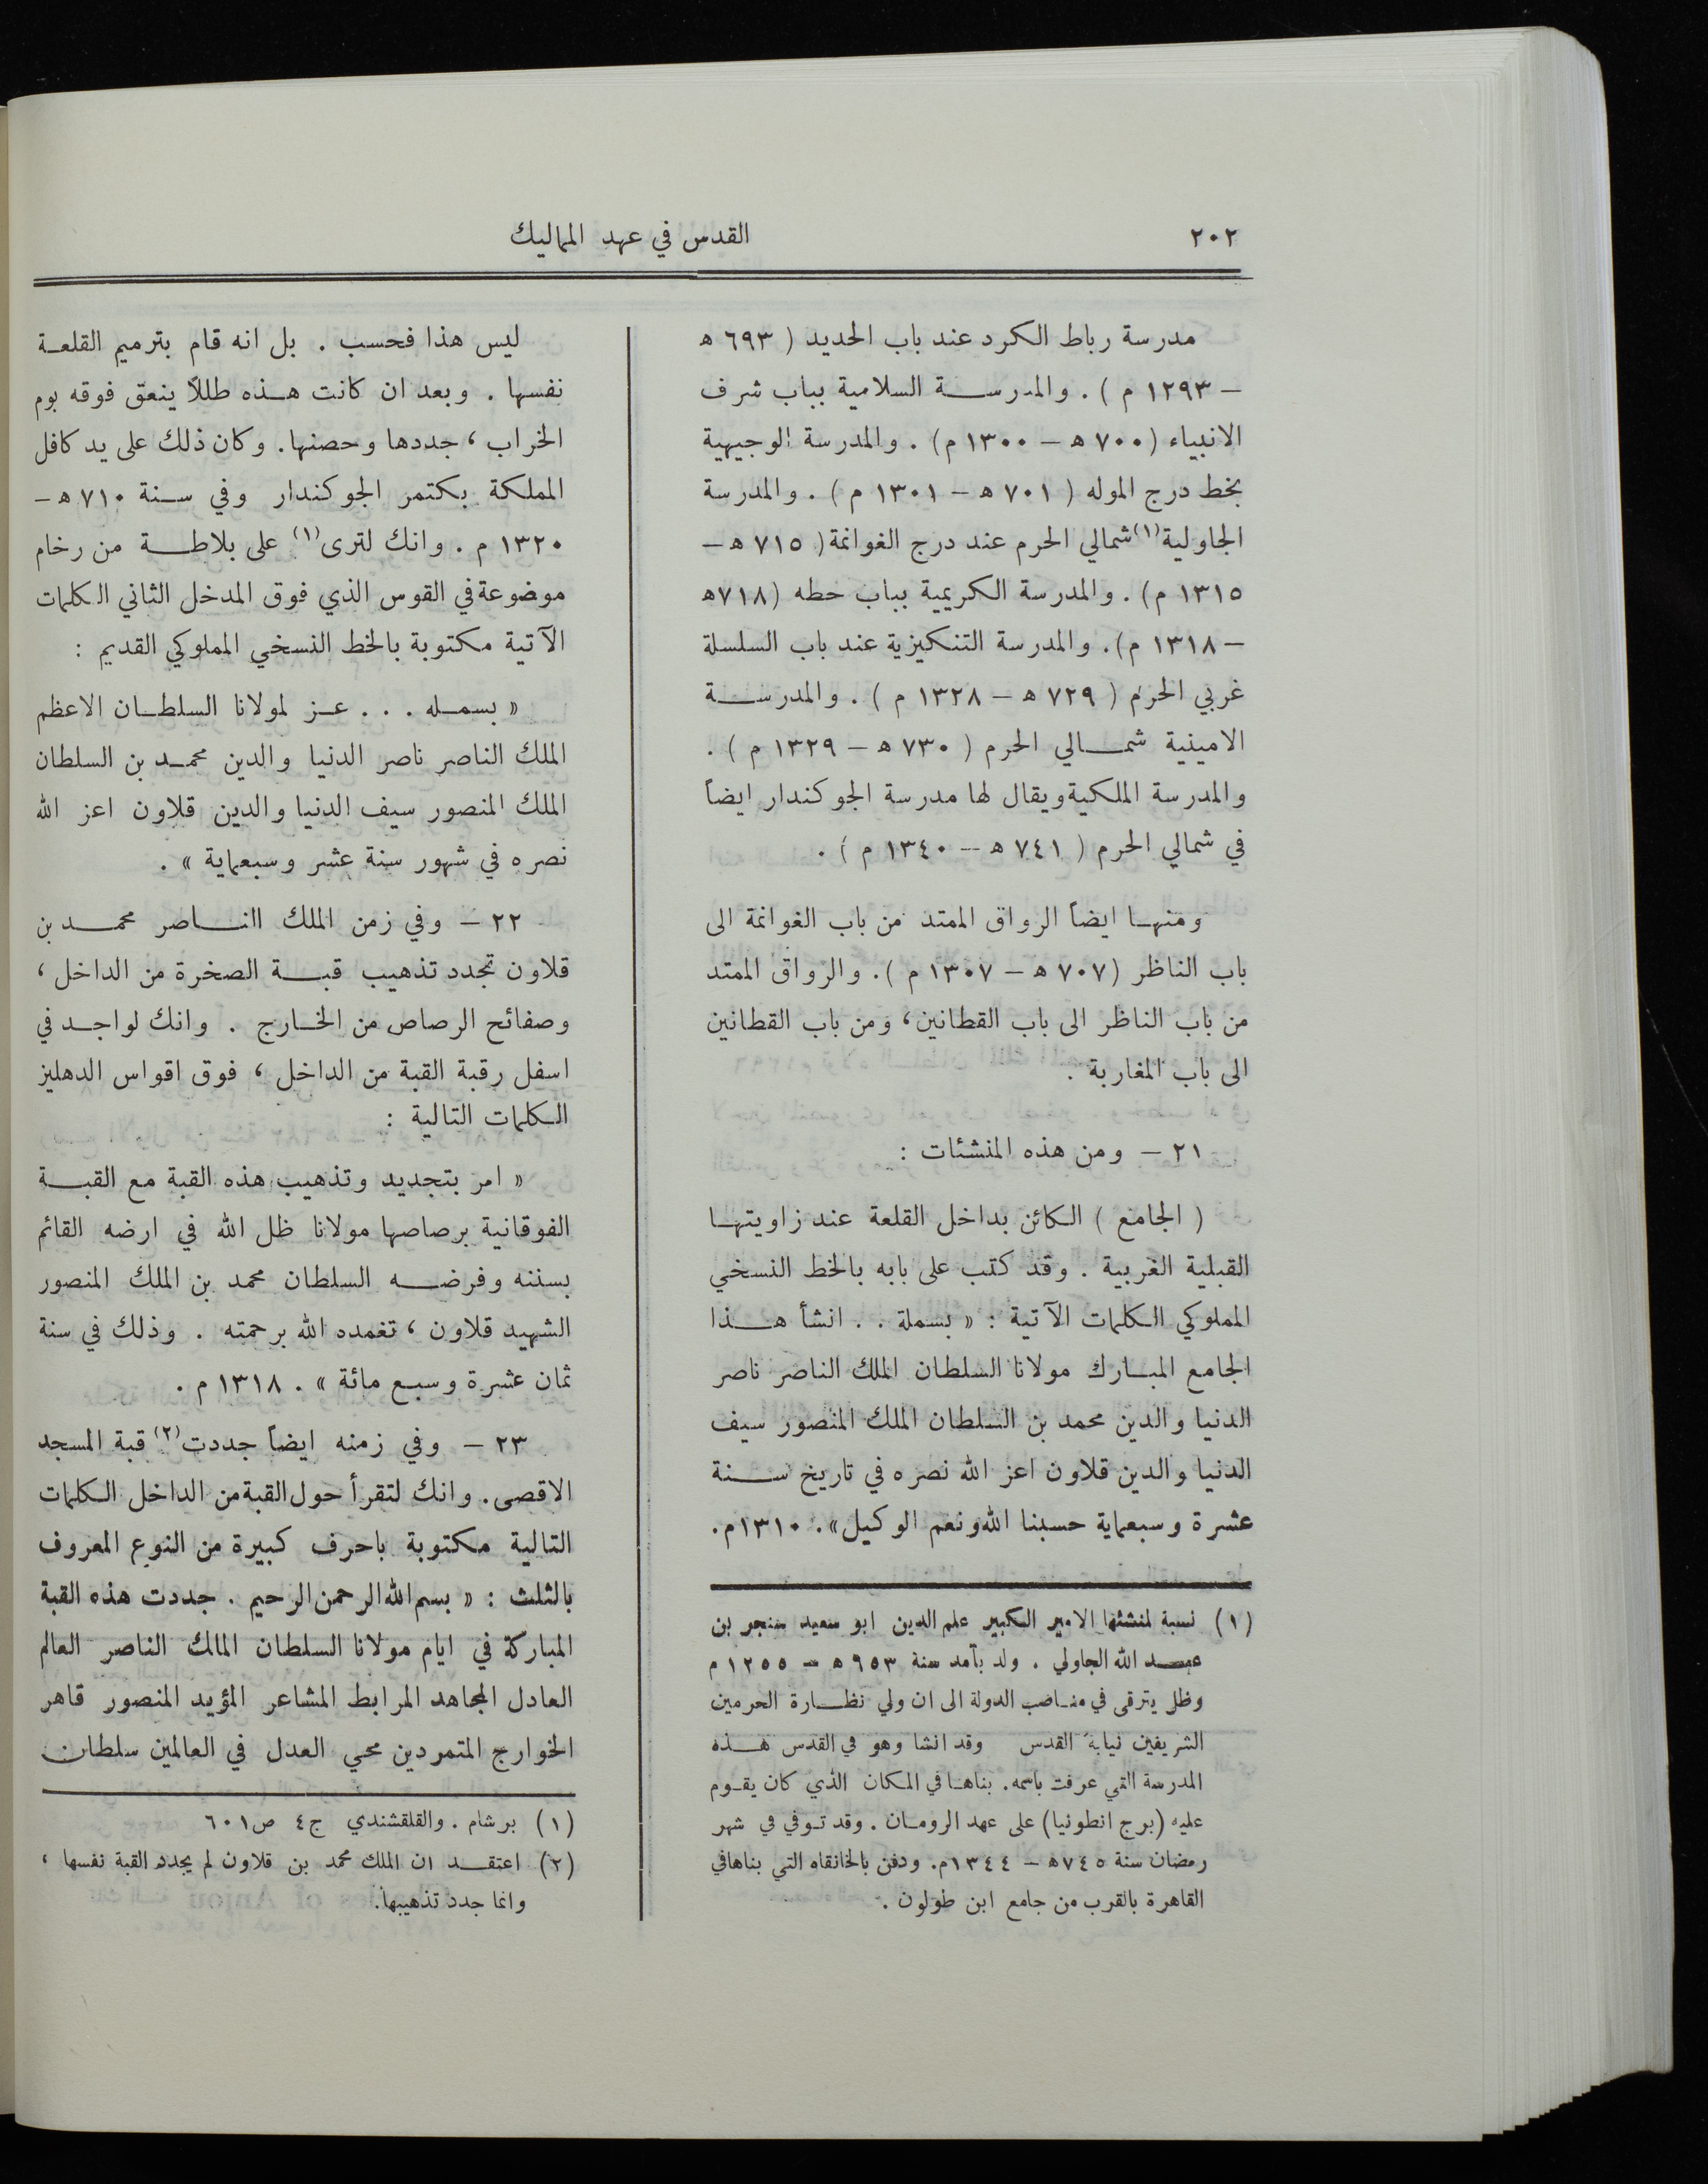 ٢٠٢
القدس في عهد المماليك
مدرسة رباط الكرد عند باب الحديد ( ٦٩٣ ه
– ١٢٩٣ م ) . والمدرسة السلامية بباب شرف
الانبياء (٧٠٠ ه – ١٣٠٠ م) . والمدرسة الوجيهية
بخط درج الموله ( ٧٠١ ه – ١٣٠١ م ) . والمدرسة
الجاولية(١) شمالي الحرم عند درج الغوانمة ( ٧١٥ ه –
١٣١٥ م) . والمدرسة الكريمية بباب حطه (٧١٨ه
– ١٣١٨ م). والمدرسة التنكيزية عند باب السلسلة
غربي الحرم ( ٧٢٩ ه – ١٣٢٨ م ) . والمدرسة
الامينية شمالي الحرم ( ٧٣٠ ه – ١٣٢٩ م ) .
والمدرسة الملكية ويقال لها مدرسة الجوكندار ايضاً
في شمالي الحرم ( ٧٤١ ه – ١٣٤٠ م ) .
ومنها ايضاً الرواق الممتد من باب الغوانمة الى
باب الناظر (٧٠٧ ه – ١٣٠٧ م ). والرواق الممتد
من باب الناظر الى باب القطانين، ومن باب القطانين
الى باب المغاربة .
٢١ – ومن هذه المنشئات :
( الجامع ) الكائن بداخل القلعة عند زاويتها
القبلية الغربية . وقد كتب على بابه بالخط النسخي
المملوكي الكلمات الآتية : « بسملة . . انشأ هذا
الجامع المبارك مولانا السلطان الملك الناصر ناصر
الدنيا والدين محمد بن السلطان الملك المنصور سيف
الدنيا والدين قلاون اعز الله نصره في تاريخ سنة
عشرة وسبعماية حسبنا الله ونعم الوكيل». ١٣١٠م.
(١) نسبة لمنشئها الامير الكبير علم الدين ابو سعيد سنجر بن
عبد الله الجاولي . ولد بآمد سنة ٩٥٣ ه – ١٢٥٥ م
وظل يترقى في مناصب الدولة الى ان ولي نظارة الحرمين
الشريفين نيابة القدس وقد انشا وهو في القدس هذه
المدرسة التي عرفت باسمه. بناها في المكان الذي كان يقوم
عليه (برج انطونيا) على عهد الرومان . وقد توفي في شهر
رمضان سنة ٧٤٥ ه – ١٣٤٤م. ودفن بالخانقاه التي بناهافي
القاهرة بالقرب من جامع ابن طولون .
ليس هذا فحسب . بل انه قام بترميم القلعة
نفسها . وبعد ان كانت هذه طللاً ينعق فوقه بوم
الخراب ، جددها وحصنها. وكان ذلك على يد كافل
المملكة بكتمر الجوكندار وفي سنة ٧١٠ ه –
١٣٢٠ م . وانك لترى(١) على بلاطة من رخام
موضوعة في القوس الذي فوق المدخل الثاني الكلمات
الآتية مكتوبة بالخط النسخي المملوكي القديم :
« بسمله . . . عز لمولانا السلطان الاعظم
الملك الناصر ناصر الدنيا والدين محمد بن السلطان
الملك المنصور سيف الدنيا والدين قلاون اعز الله
نصره في شهور سنة عشر وسبعماية » .
٢٢ – وفي زمن الملك الناصر محمد بن
قلاون تجدد تذهيب قبة الصخرة من الداخل ،
وصفائح الرصاص من الخارج . وانك لواجد في
اسفل رقبة القبة من الداخل ، فوق اقواس الدهليز
الكلمات التالية :
« امر بتجديد وتذهيب هذه القبة مع القبة
الفوقانية برصاصها مولانا ظل الله في ارضه القائم
بسننه وفرضه السلطان محمد بن الملك المنصور
الشهيد قلاون ، تغمده الله برحمته . وذلك في سنة
ثمان عشرة وسبع مائة » . ١٣١٨ م .
٢٣ – وفي زمنه ايضاً جددت(٢) قبة المسجد
الاقصى. وانك لتقرأ حول القبة من الداخل الكلمات
التالية مكتوبة باحرف كبيرة من النوع المعروف
بالثلث : « بسم الله الرحمن الرحيم . جددت هذه القبة
المباركة في ايام مولانا السلطان المالك الناصر العالم
العادل المجاهد المرابط المشاعر المؤيد المنصور قاهر
الخوارج المتمردين محي العدل في العالمين سلطان
(١) برشام . والقلقشندي ج٤ ص٦٠١
(٢) اعتقد ان الملك محمد بن قلاون لم يجدد القبة نفسها ،
وانما جدد تذهيبها.